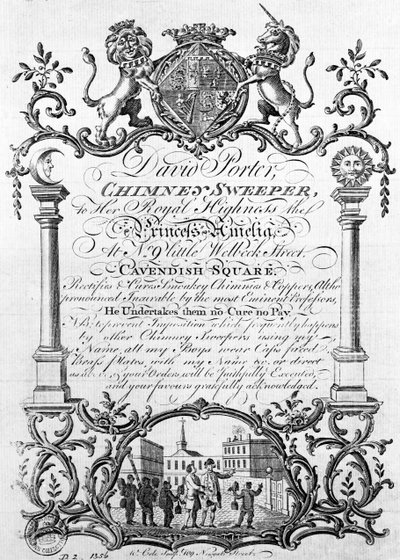 David Porter,
CHIMNEY SWEEPER,
to Her Royal Highness the
Princess Amelia,
At No. 9 little Welbeck Street,
CAVENDISH SQUARE.
Rectifies & Cures Smoakey Chimnies & Coppers, Altho'
pronounced Incurable by the most Eminent Professors,
He Undertakes them no Cure no Pay.
NB. to prevent Imposition which frequently happens
by other Chimney Sweepers using my
Name, all my Boys wear Caps fixed
Brass Plates with my Name &c. or direct
as above your Orders will be faithfully Executed,
and your favours gratefully acknowledged.
W. Cole Sculp. 109 Newgate Street.
D.2. 1356